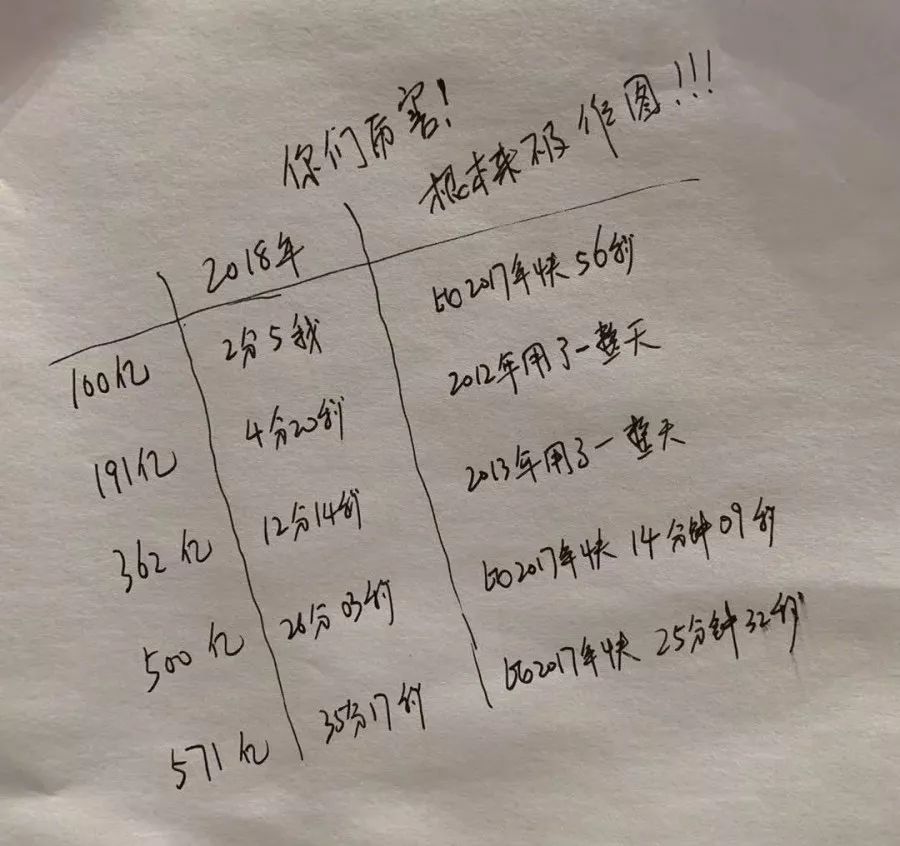 你们厉害!
根本来不及作图!!!
2018年
100亿 2分5秒 比2017年快56秒
191亿 4分20秒 2012年用了一整天
362亿 12分14秒 2013年用了一整天
500亿 26分03秒 比2017年快14分钟09秒
571亿 35分17秒 比2017年快25分钟32秒